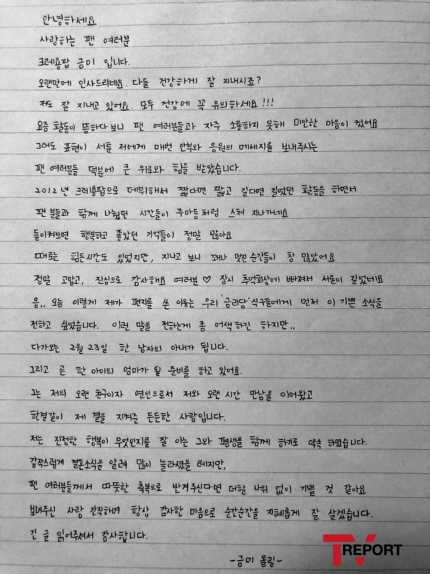 안녕하세요
사랑하는 팬 여러분
크레용팝 금미 입니다.
오랜만에 인사드리네요. 다들 건강하게 잘 지내시죠?
저도 잘 지내고 있어요. 모두 건강에 꼭 유의하세요 !!!
요즘 활동이 뜸하다 보니 팬 여러분들과 자주 소통하지 못해 미안한 마음이 컸어요
그래도 표현이 서툰 저에게 매번 안부와 응원의 메세지를 보내주시는
팬 여러분들 덕분에 큰 위로와 힘을 받았습니다.
2012년 크레용팝으로 데뷔해서 짧다면 짧고 길다면 길었던 활동을 하면서
팬 분들과 함께 나눴던 시간들이 주마등처럼 스쳐 지나가네요
돌이켜보면 행복하고 좋았던 기억들이 정말 많아요
때로는 힘든시간도 있었지만, 지나고 보니 꽤나 멋진순간들이 참 많았어요
정말 고맙고, 진심으로 감사해요 여러분 ♡ 잠시 추억회상에 빠져서 서론이 길었네요
음,, 오늘 이렇게 제가 편지를 쓴 이유는 우리 '금리당' 식구들에게 먼저 이 기쁜 소식을
전하고 싶었습니다. 이런 말을 전하는게 좀 어색하긴 하지만,,
다가오는 2월 23일 한 남자의 아내가 됩니다.
그리고 곧 한 아이의 엄마가 될 준비를 하고 있어요.
그는 저의 오랜 친구이자 연인으로서 저와 오랜 시간 만남을 이어왔고
한결같이 제 곁을 지켜준 든든한 사람입니다.
저는 진정한 행복이 무엇인지를 잘 아는 그와 평생을 함께 하기로 약속 하였습니다.
갑작스럽게 결혼소식을 알려 많이 놀라셨을 테지만,
팬 여러분들께서 따뜻한 축복으로 반겨주신다면 더할 나위 없이 기쁠 것 같아요
보내주신 사랑 간직하며 항상 감사한 마음으로 순간순간을 지혜롭게 잘 살겠습니다.
긴 글 읽어주셔서 감사합니다.
-금미 올림-
TV REPORT